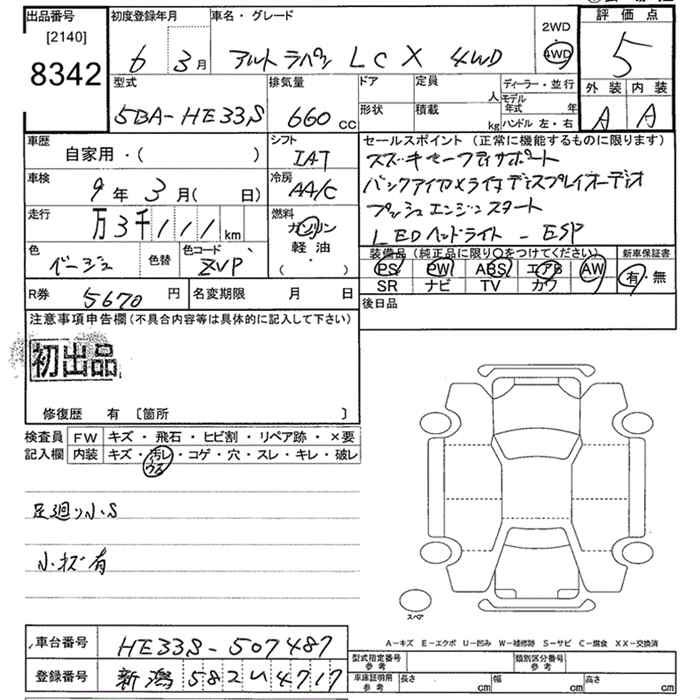 出品番号 [2140] 8342
初度登録年月 6 3月
車名・グレード アルトラパン LC X 4WD
2WD 4WD
評価点 5
外装 内装
A A
型式 5BA-HE33S
排気量 660 cc
ドア 定員 人
形状 積載 kg
ディーラー・並行
モデル年式 年
ハンドル 左・右
車歴 自家用・( )
シフト IAT
車検 9年3月( 日)
冷房 AA/C
走行 万3千111km
燃料 ガソリン 軽油 ( ・ )
色 ベージュ 色替 色コード ZVP
セールスポイント(正常に機能するものに限ります)
スズキセーフティサポート
バックアイカメラ付ディスプレイオーディオ
プッシュエンジンスタート
LEDヘッドライト - ESP
装備品(純正品に限り○をつけてください)
PS PW ABS エアB AW
SR ナビ TV カワ
新車保証書 有・無
R券 5670円 名変期限 月 日
後日品
注意事項申告欄(不具合内容等は具体的に記入して下さい)
初出品
修復歴 有 [箇所 ]
検査員記入欄 FW キズ・飛石・ヒビ割・リペア跡・×要
内装 キズ・汚レ・コゲ・穴・スレ・キレ・破レ
ウス
足廻り小S
小キズ有
スペア
A-キズ E-エクボ U-凹み W-補修跡 S-サビ C-腐食 XX-交換済
車台番号 HE33S-507487
登録番号 新潟 582 い 4717
型式指定番号 参考 類別区分番号 参考
車庫証明用 参考 長さ cm 幅 cm 高さ cm